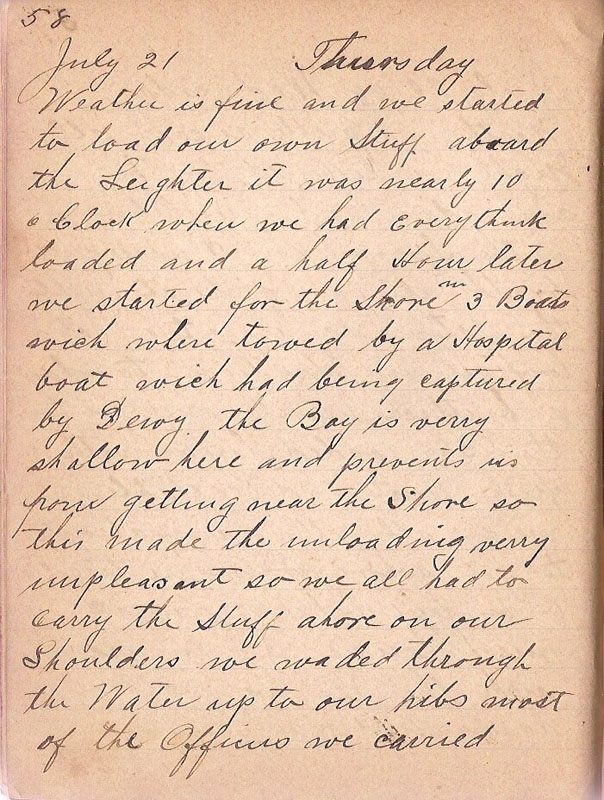 58
July 21 Thursday
Weather is fine and we started
to load our own Stuff aboard
the Leighter it was nearly 10
o Clock when we had everythink
loaded and a half Hour later
we started for the Shore in 3 Boats
wich where towed by a Hospital
boat wich had being captured
by Dewy. the Bay is verry
shallow here and prevents us
from getting near the Shore so
this made the unloading verry
unpleasant so we all had to
carry the Stuff ahore on our
Shoulders we waded through
the Water up to our hibs most
of the Officers we carried